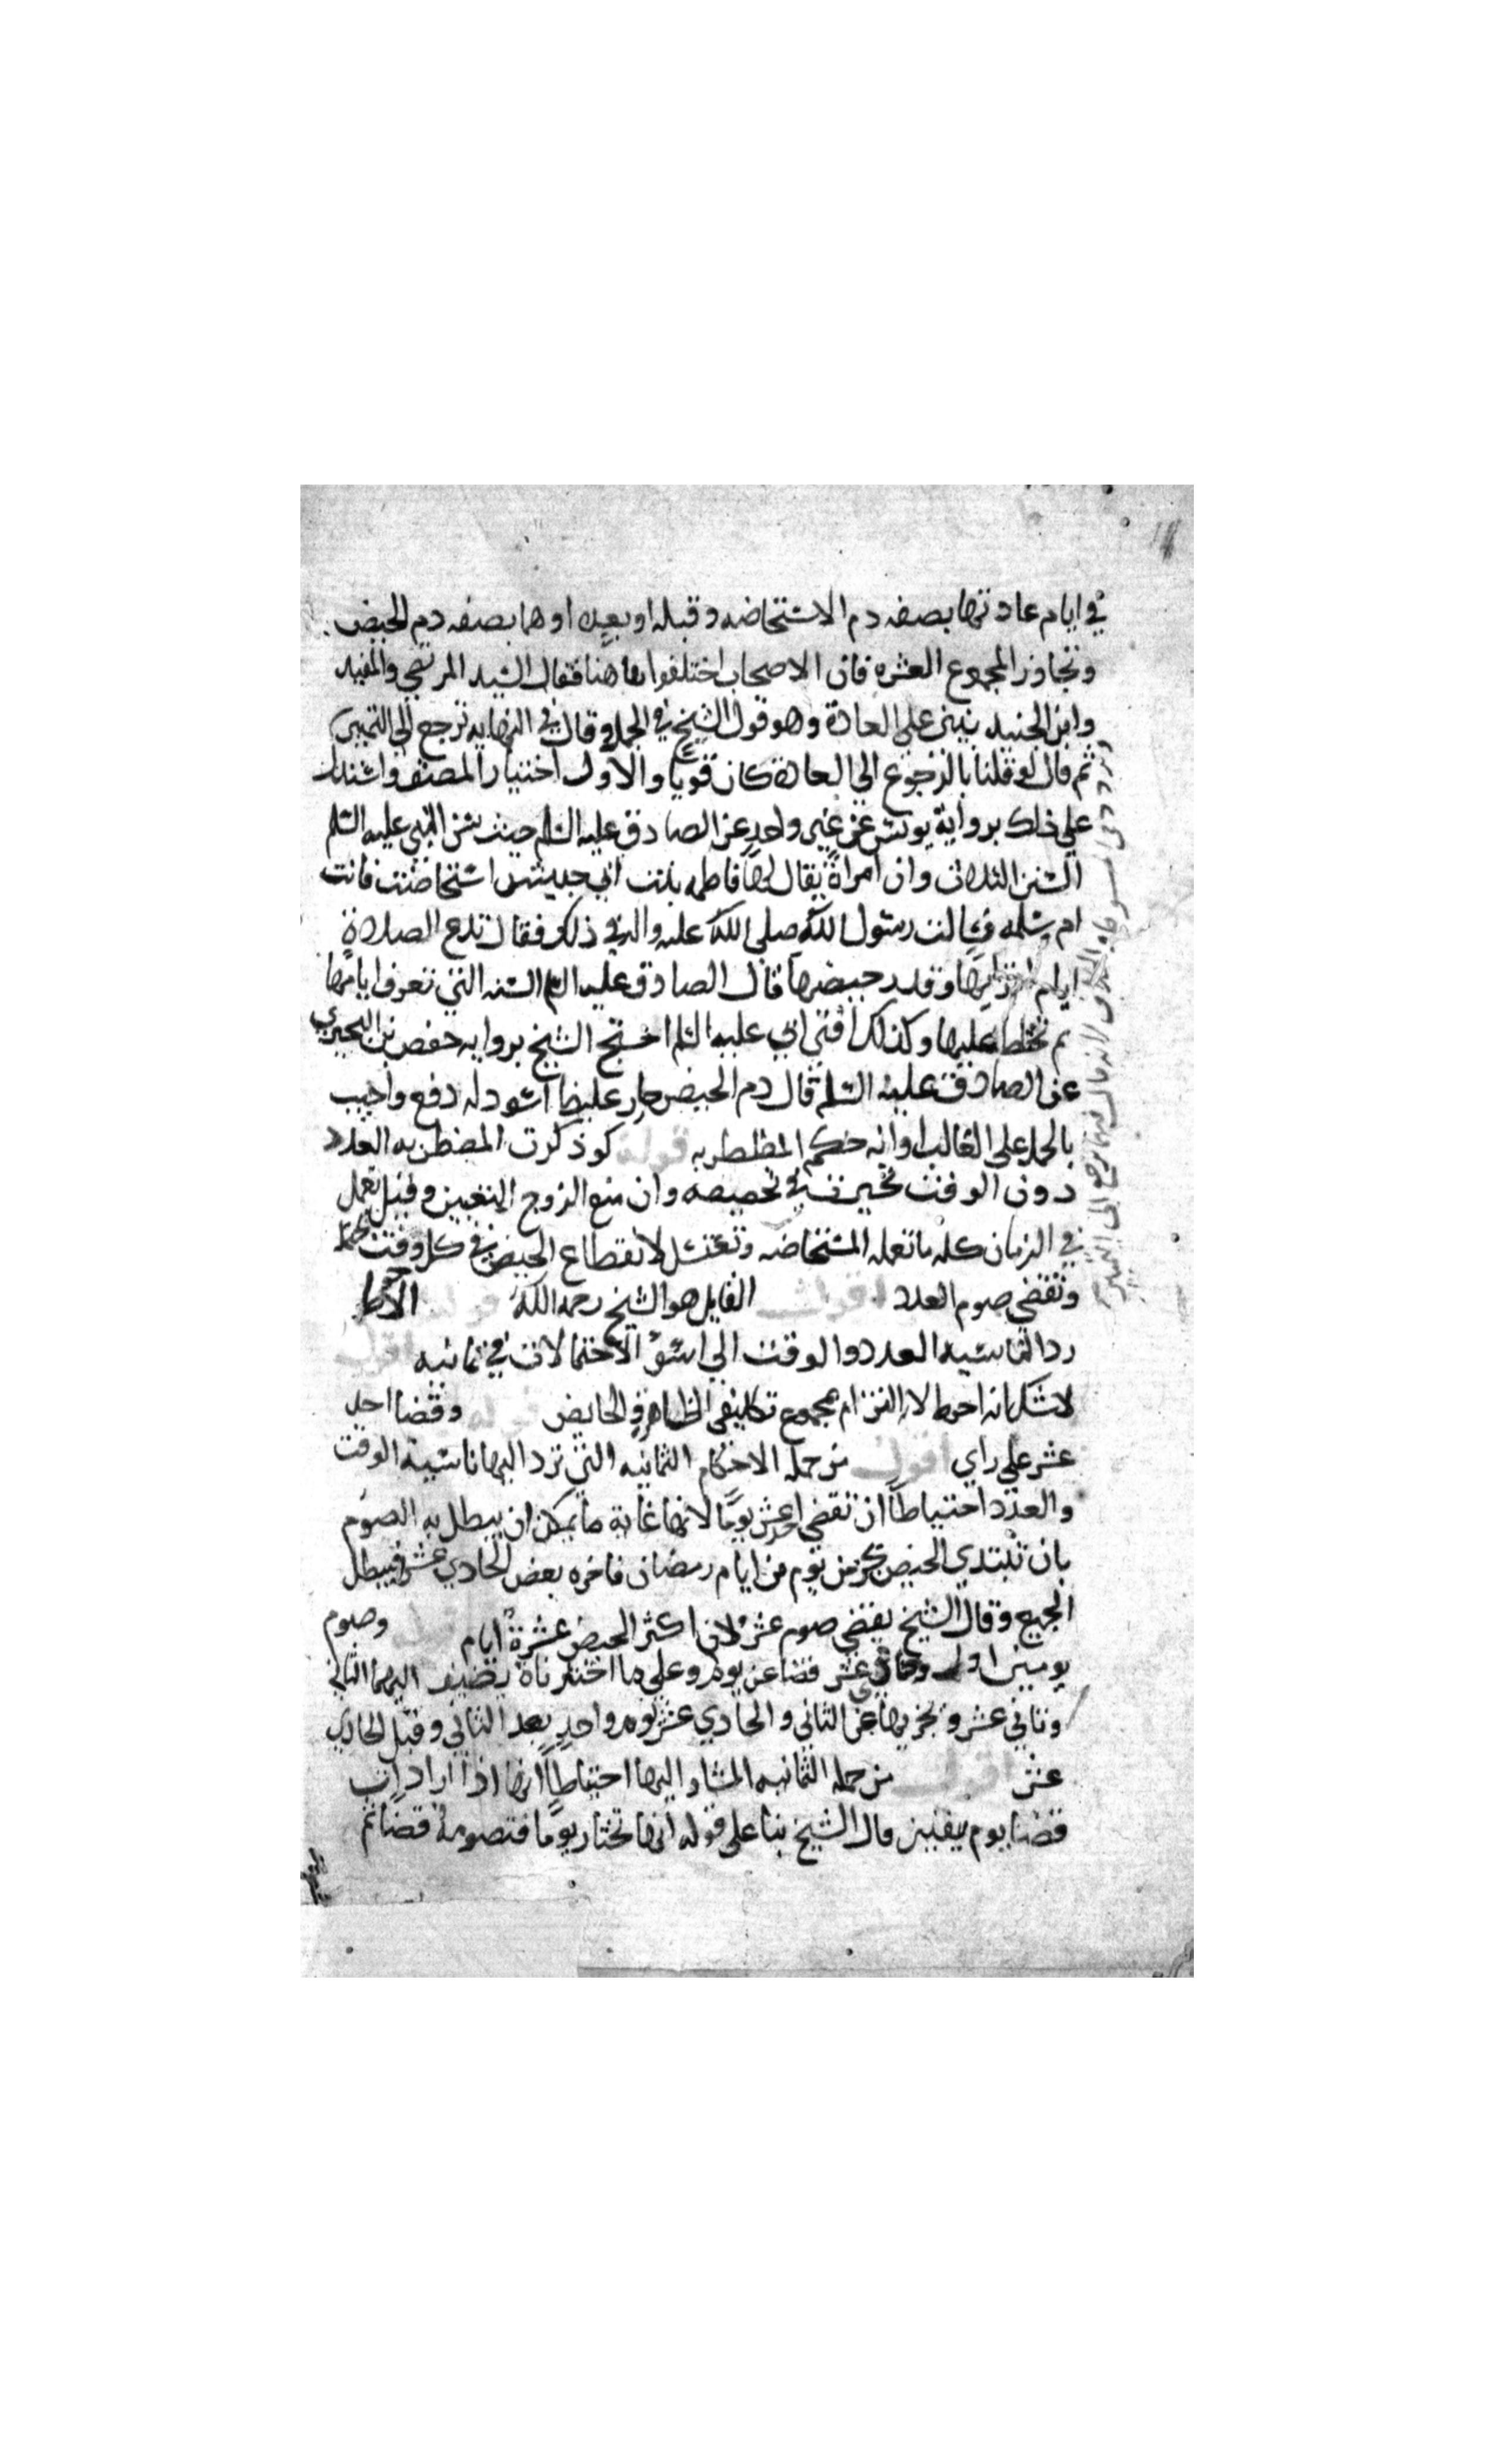 في ايام عادتها بصفه دم الاستحاضه وقبله او بعده او هما بصفه دم الحيض
وتجاوز المجموع العشره فان الاصحاب اختلفوا هاهنا فقال السيد المرتضي والمفيد
وابن الجنيد تبني علي العادة وهو قول الشيخ في الجمل وقال في النهايه ترجع الي التمييز
ثم قال لو قلنا بالرجوع الي العادة كان قويا والاول اختيار المصنف واستدل
علي ذلك برواية يونس عن غير واحد عن الصادق عليه السلم حيث سن النبي عليه السلم
السنن الثلاث وان امراة يقال لها فاطمه بنت ابي حبيش استحاضت فاتت
ام سلمه فسالت رسول الله صلي الله عليه واله في ذلك فقال تدع الصلاة
ايام اقرايها وقدر حيضها قال الصادق عليه السلم السنه التي تعرف ايامها
ثم تختلط عليها وكذلك افتي ابي عليه السلم احتج الشيخ بروايه حفص بن البحيري
عن الصادق عليه السلم قال دم الحيض حار عليظ اسود له دفع واجيب
بالحمل علي الغالب او انه حكم المضطربه قوله لو ذكرت المضطربه العدد
دون الوقت تخيرت في تحيضه وان منع الزوج التعيين وقيل تعمل
في الزمان كله ما تعمله المستحاضه وتغتسل لانقطاع الحيض في كل وقت يحتمل
وتقضي صوم العدد اقول القايل هو الشيخ رحمه الله قوله الاحوط
رد الناسيه العدد والوقت الي اسوء الاحتمالات في ثمانيه اقول
لا شك انه احوط لانه التزام مجموع تكليفي الطاهر والحايض قوله وقضا احد
عشر علي راي اقول من جمله الاحكام الثمانيه التي ترد اليها ناسية الوقت
والعدد احتياطا ان تقضي احد عشر يوما لانها غاية ما يمكن ان يبطل به الصوم
بان تبتدي الحيض بجزء من يوم من ايام رمضان فاخره بعض الحادي عشر فيبطل
الجميع وقال الشيخ يقضي صوم عشره لان اكثر الحيض عشرة ايام قوله وصوم
يومين اول وحادي عشر قضا عن يوم وعلي ما اخترناه يضيف اليهما الثاني
وثاني عشر ويجزيها عن الثاني والحادي عشر يوم واحد بعد الثاني وقبل الحادي
عشر اقول من جمله الثمانيه المشار اليها احتياطا انها اذا ارادت
قضا يوم بيقين قال الشيخ بنا علي قوله انها تختار يوما فتصومه قضا ثم